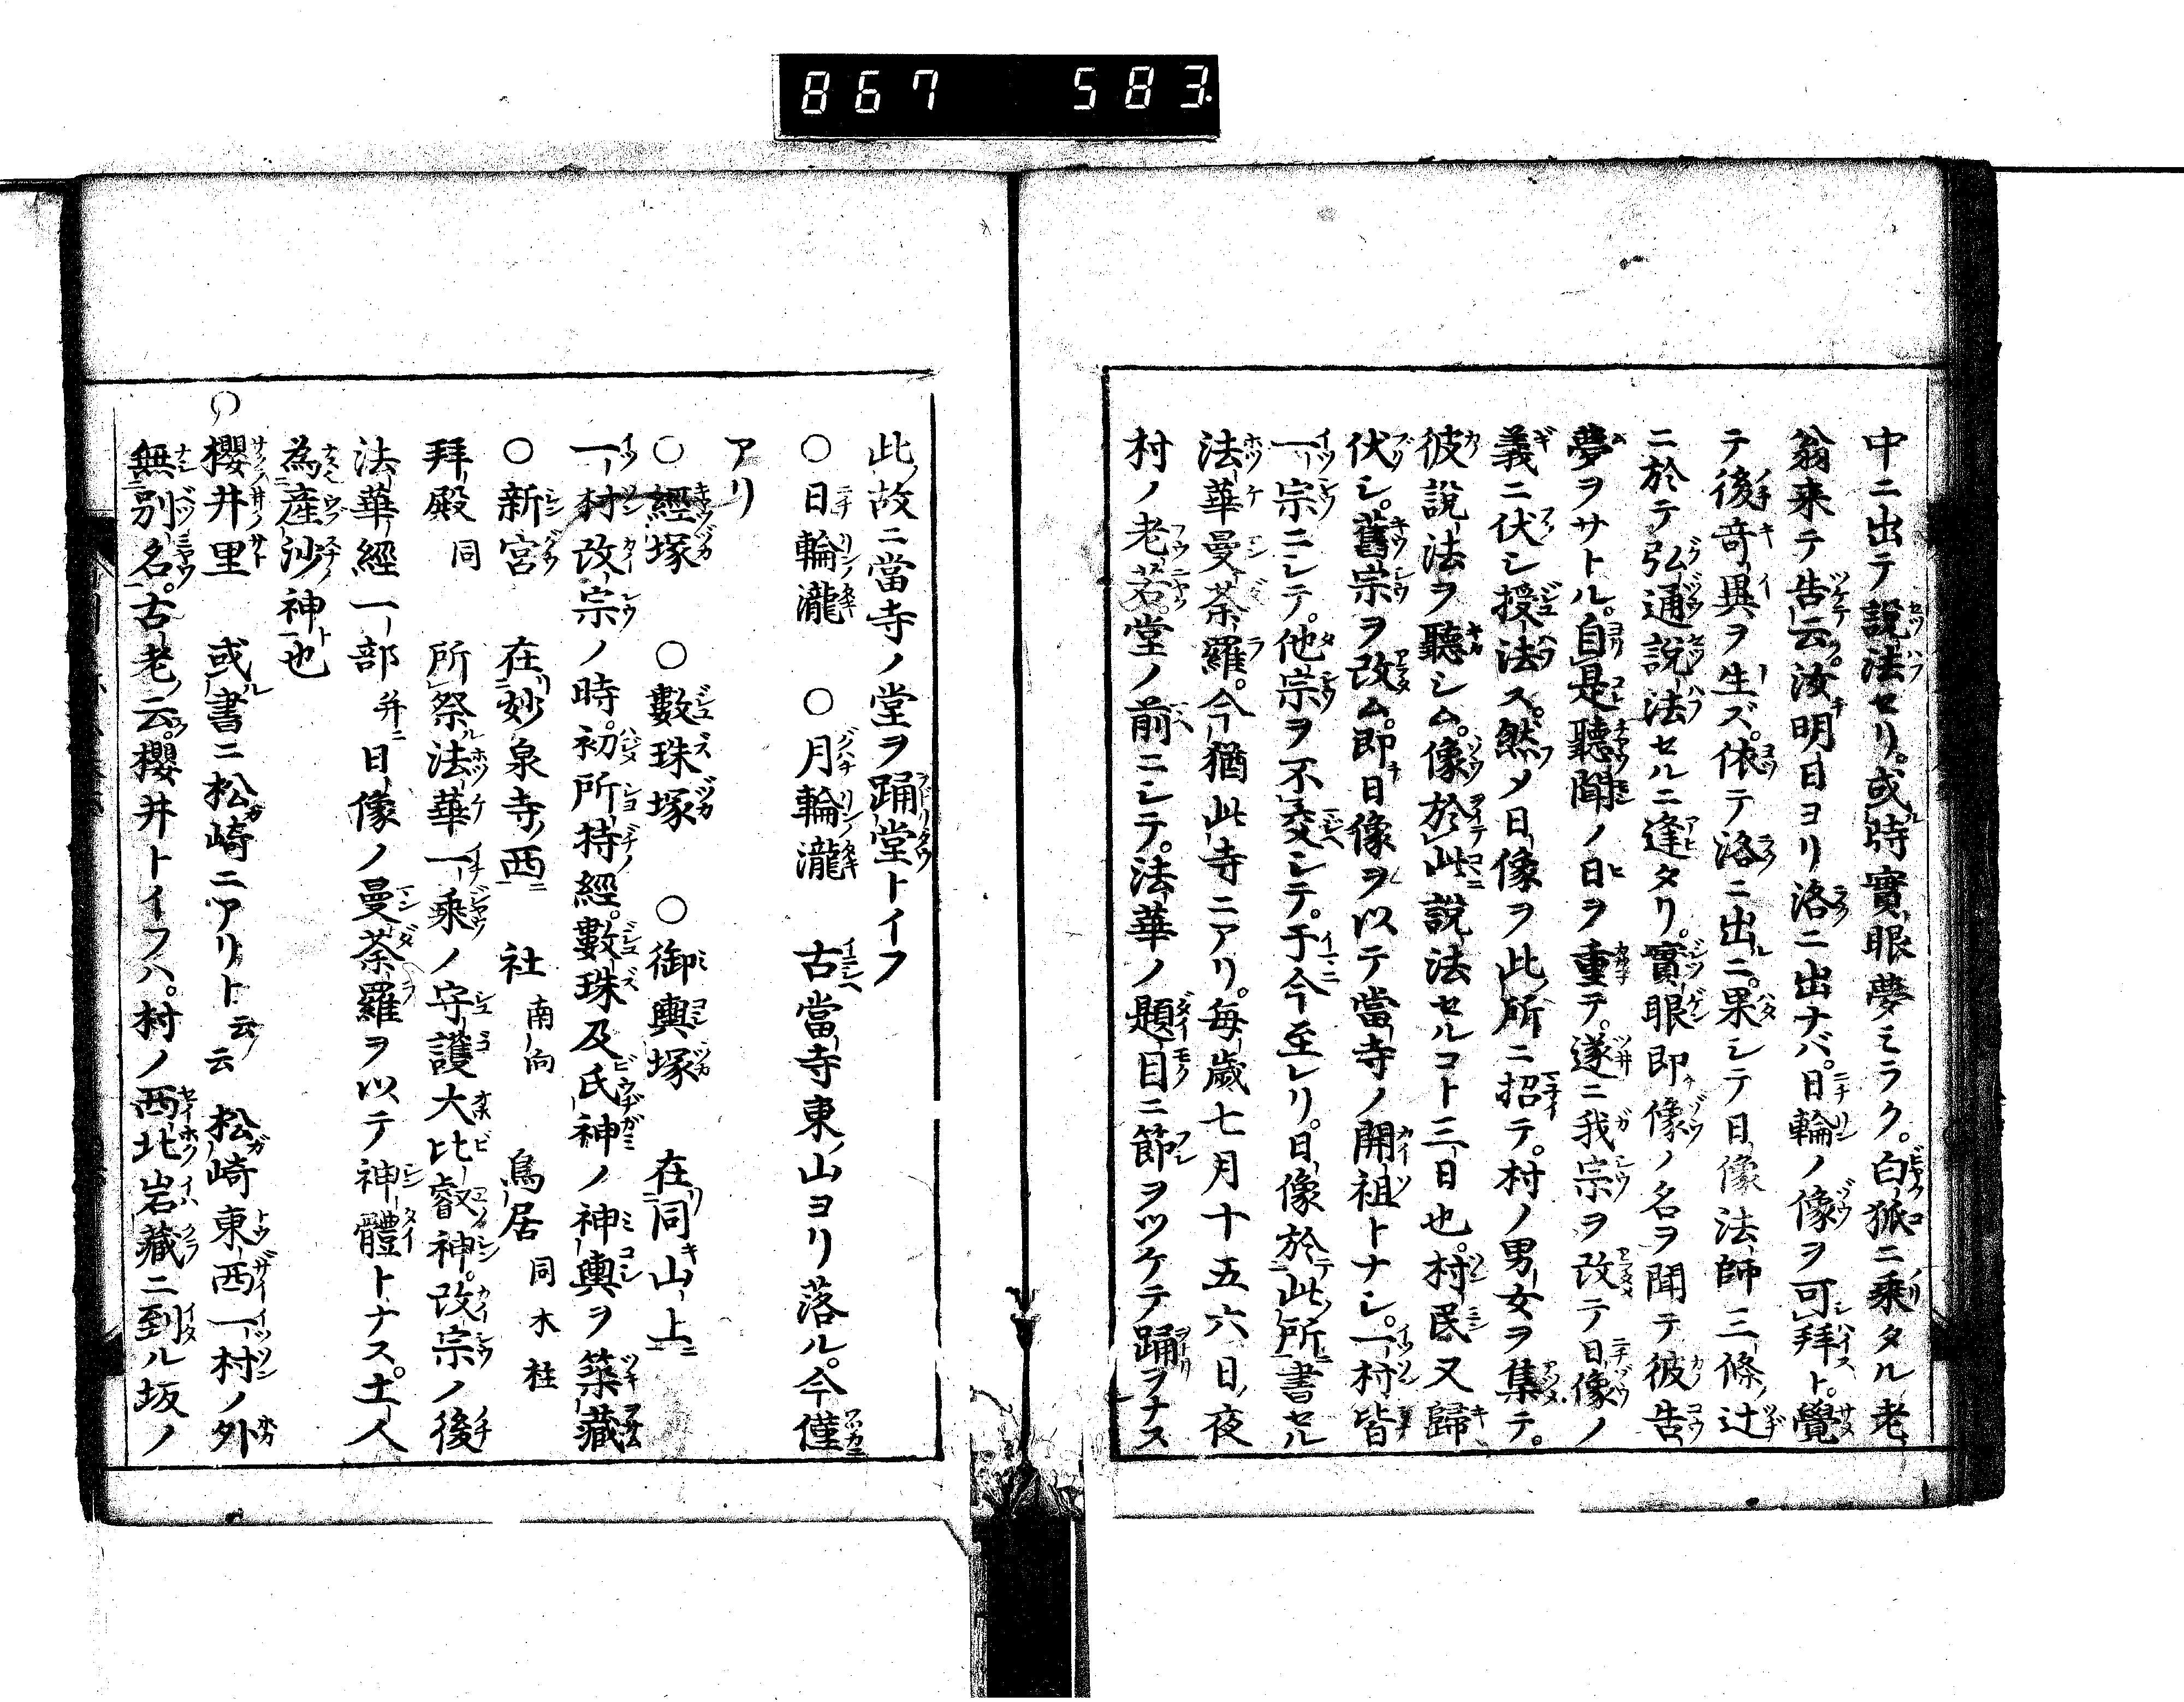 867 583.
中ニ出テ說法セリ。或時實眼夢ミラク。白狐ニ乘タル老
翁来テ告云。汝明日ヨリ洛ニ出ナバ。日輪ノ像ヲ可拜ト。覺
テ後奇異ヲ生ズ。依テ洛ニ出ニ。果シテ日像法師三條ノ辻
ニ於テ弘通說法セルニ逢タリ。實眼即像ノ名ヲ聞テ彼告
夢ヲサトル。自是聽聞ノ日ヲ重テ。遂ニ我宗ヲ改テ日像ノ
義ニ伏シ授法ス。然〆日像ヲ此所ニ招テ。村ノ男女ヲ集テ。
彼說法ヲ聽シム。像於此說法セルコト三日也。村民又歸
伏シ。舊宗ヲ改ム。即日像ヲ以テ當寺ノ開祖トナシ。一村皆
一宗ニシテ。他宗ヲ不交シテ。于今至レリ。日像於此所書セル
法華曼荼羅。今猶此寺ニアリ。每歲七月十五六日ノ夜
村ノ老若堂ノ前ニシテ。法華ノ題目ニ節ヲツケテ踊ヲナス
此故ニ當寺ノ堂ヲ踊堂トイフ
○日輪瀧 ○月輪瀧 古當寺東ノ山ヨリ落ル。今僅
アリ
○經塚 ○數珠塚 ○御輿塚 在同山上
一村改宗ノ時。初所持經。數珠及氏神ノ神輿ヲ築藏
○新宮 在妙泉寺ノ西 社南向 鳥居同木柱
拜殿同 所祭法華一乘ノ守護大比叡神。改宗ノ後
法華經一部幷日像ノ曼荼羅ヲ以テ神體トナス。土人
為產沙神也
○櫻井里 或書ニ松崎ニアリト云云 松崎東西一村ノ外
無別名。古老云。櫻井トイフハ。村ノ西北岩藏ニ到ル坂ノ